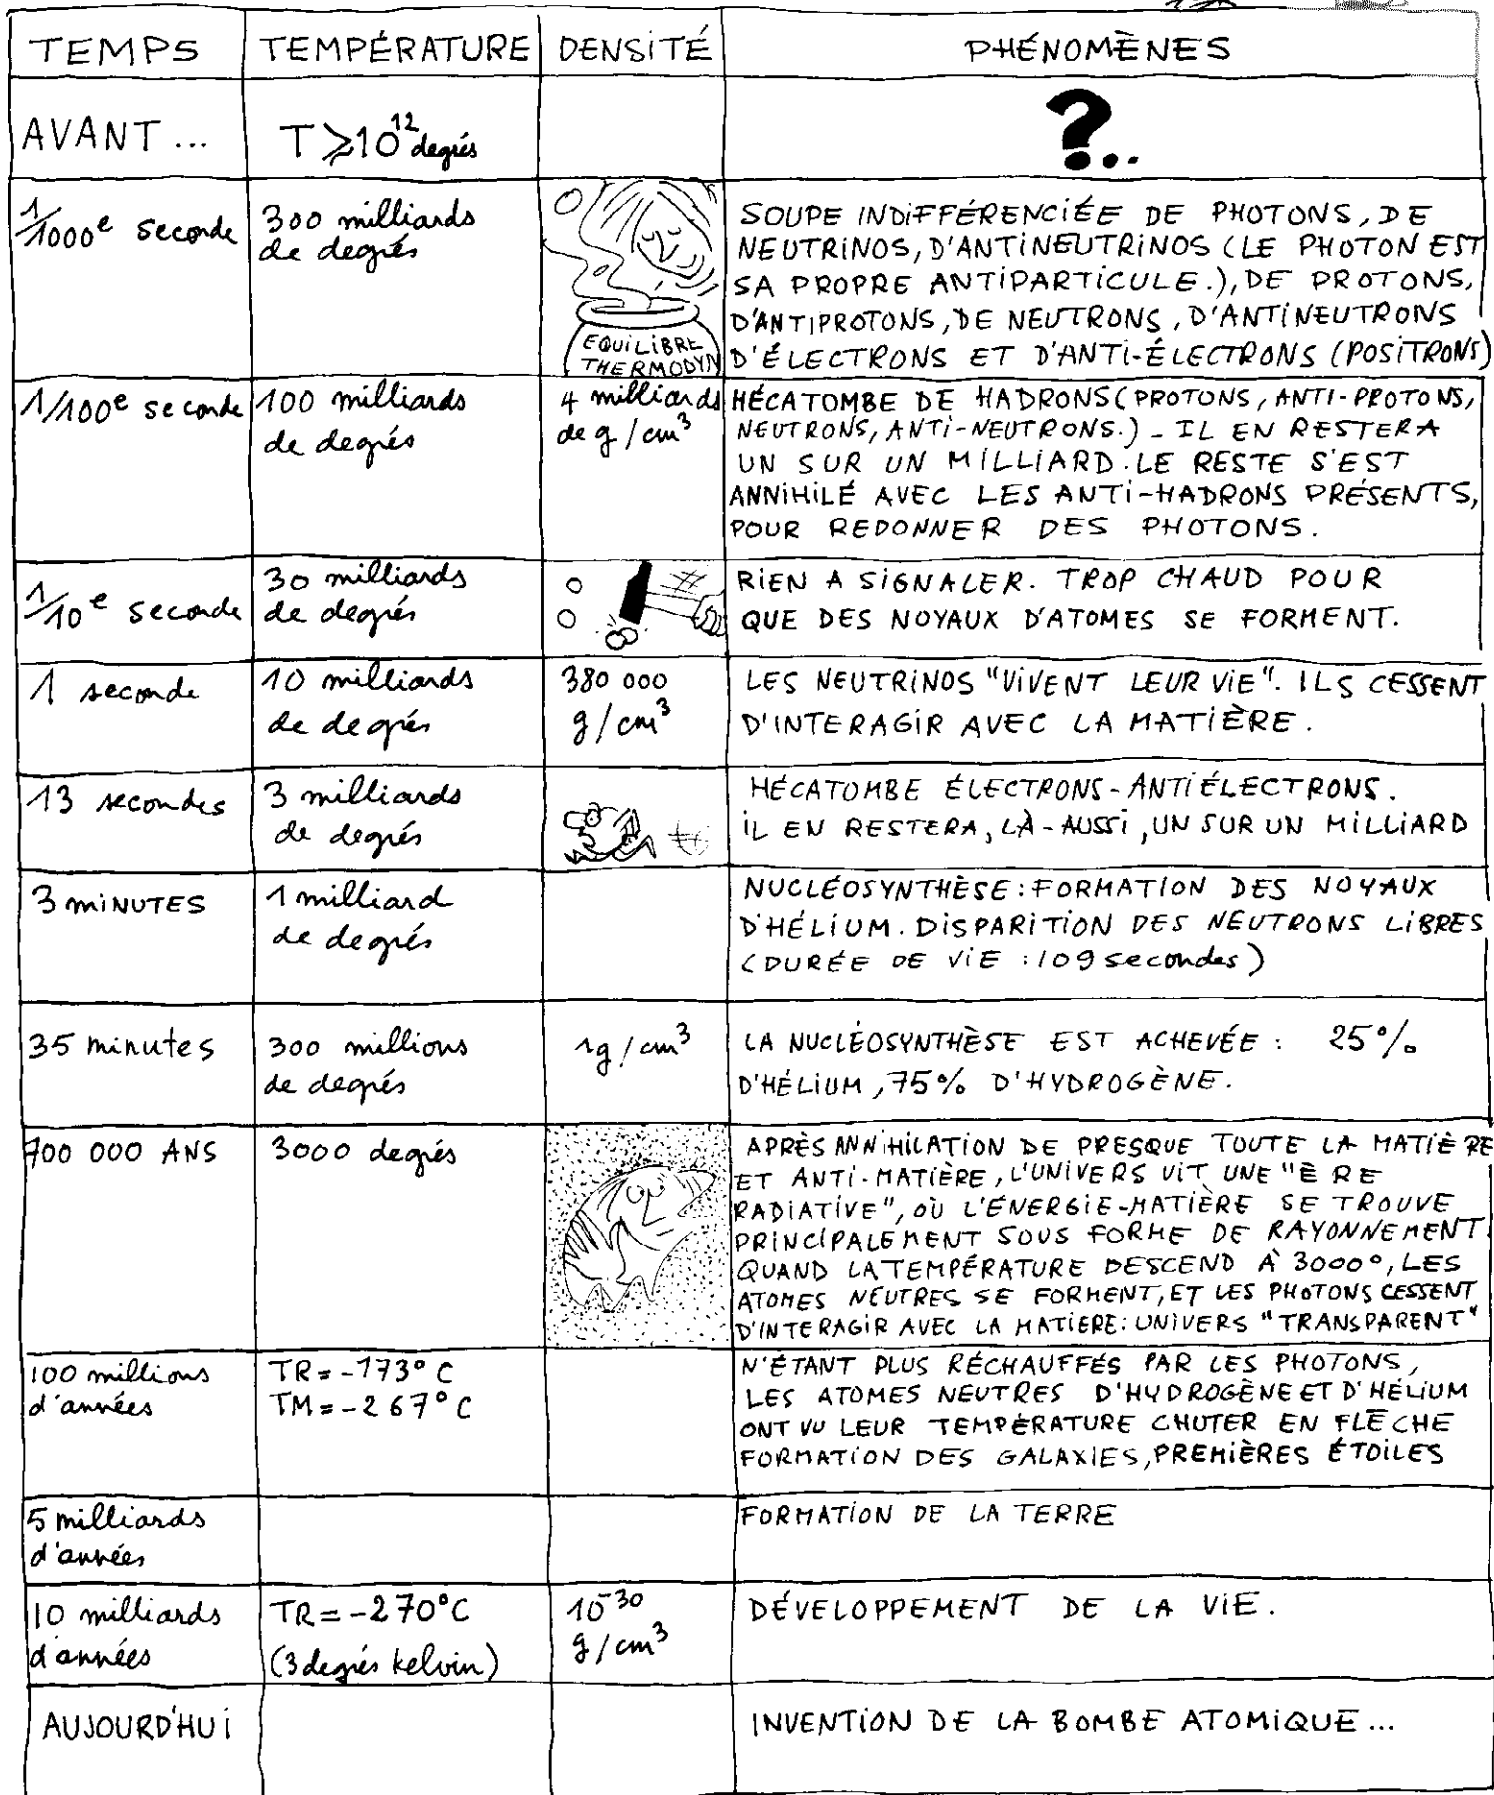 TEMPS TEMPÉRATURE DENSITÉ PHÉNOMÈNES
AVANT... T ⩾ 10¹² degrés ?..
1/1000e seconde
300 milliards
de degrés
EQUILIBRE
THERMODYN
SOUPE INDIFFÉRENCIÉE DE PHOTONS, DE
NEUTRINOS, D'ANTINEUTRINOS (LE PHOTON EST
SA PROPRE ANTIPARTICULE.), DE PROTONS,
D'ANTIPROTONS, DE NEUTRONS, D'ANTINEUTRONS
D'ÉLECTRONS ET D'ANTI-ÉLECTRONS (POSITRONS)
1/100e seconde
100 milliards
de degrés
4 milliards
de g/cm³
HÉCATOMBE DE HADRONS (PROTONS, ANTI-PROTONS,
NEUTRONS, ANTI-NEUTRONS.) - IL EN RESTERA
UN SUR UN MILLIARD. LE RESTE S'EST
ANNIHILÉ AVEC LES ANTI-HADRONS PRÉSENTS,
POUR REDONNER DES PHOTONS.
1/10e seconde
30 milliards
de degrés
RIEN A SIGNALER. TROP CHAUD POUR
QUE DES NOYAUX D'ATOMES SE FORMENT.
1 seconde
10 milliards
de degrés
380 000
g/cm³
LES NEUTRINOS "VIVENT LEUR VIE". ILS CESSENT
D'INTERAGIR AVEC LA MATIÈRE.
13 secondes
3 milliards
de degrés
HÉCATOMBE ÉLECTRONS-ANTIÉLECTRONS.
IL EN RESTERA, LÀ-AUSSI, UN SUR UN MILLIARD
3 MINUTES
1 milliard
de degrés
NUCLÉOSYNTHÈSE: FORMATION DES NOYAUX
D'HÉLIUM. DISPARITION DES NEUTRONS LIBRES
(DURÉE DE VIE : 109 secondes)
35 minutes
300 millions
de degrés
1g/cm³
LA NUCLÉOSYNTHÈSE EST ACHEVÉE : 25%
D'HÉLIUM, 75% D'HYDROGÈNE.
700 000 ANS
3000 degrés
APRÈS ANNIHILATION DE PRESQUE TOUTE LA MATIÈRE
ET ANTI-MATIÈRE, L'UNIVERS VIT UNE "ÈRE
RADIATIVE", OÙ L'ÉNERGIE-MATIÈRE SE TROUVE
PRINCIPALEMENT SOUS FORME DE RAYONNEMENT.
QUAND LA TEMPÉRATURE DESCEND À 3000°, LES
ATOMES NEUTRES SE FORMENT, ET LES PHOTONS CESSENT
D'INTERAGIR AVEC LA MATIERE: UNIVERS "TRANSPARENT"
100 millions
d'années
TR = -173° C
TM = -267° C
N'ÉTANT PLUS RÉCHAUFFÉS PAR LES PHOTONS,
LES ATOMES NEUTRES D'HYDROGÈNE ET D'HÉLIUM
ONT VU LEUR TEMPÉRATURE CHUTER EN FLÈCHE
FORMATION DES GALAXIES, PREMIÈRES ÉTOILES
5 milliards
d'années
FORMATION DE LA TERRE
10 milliards
d'années
TR = -270°C
(3 degrés kelvin)
10⁻³⁰
g/cm³
DÉVELOPPEMENT DE LA VIE.
AUJOURD'HUI
INVENTION DE LA BOMBE ATOMIQUE...